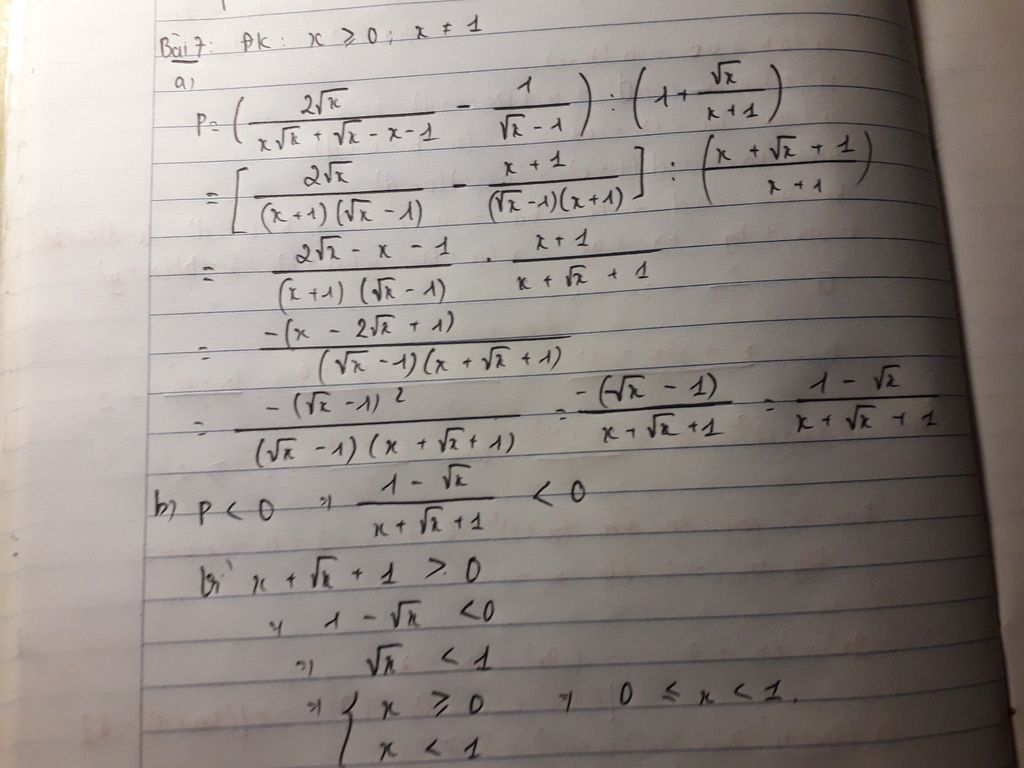 Bài 7: ĐK: x ≥ 0; x ≠ 1
a,
P = ( 2√x / (x√x + √x - x - 1) - 1 / (√x - 1) ) : ( 1 + √x / (x + 1) )
= [ 2√x / ((x+1)(√x - 1)) - (x + 1) / ((√x - 1)(x+1)) ] : ( (x + √x + 1) / (x + 1) )
= (2√x - x - 1) / ((x+1)(√x - 1)) . (x + 1) / (x + √x + 1)
= -(x - 2√x + 1) / ((√x - 1)(x + √x + 1))
= -(√x - 1)² / ((√x - 1)(x + √x + 1)) = -(√x - 1) / (x + √x + 1) = (1 - √x) / (x + √x + 1)
b) P < 0 ⇒ (1 - √x) / (x + √x + 1) < 0
Vì x + √x + 1 > 0
⇒ 1 - √x < 0
⇒ √x < 1
⇒ { x ≥ 0 ⇒ 0 ≤ x < 1.
x < 1